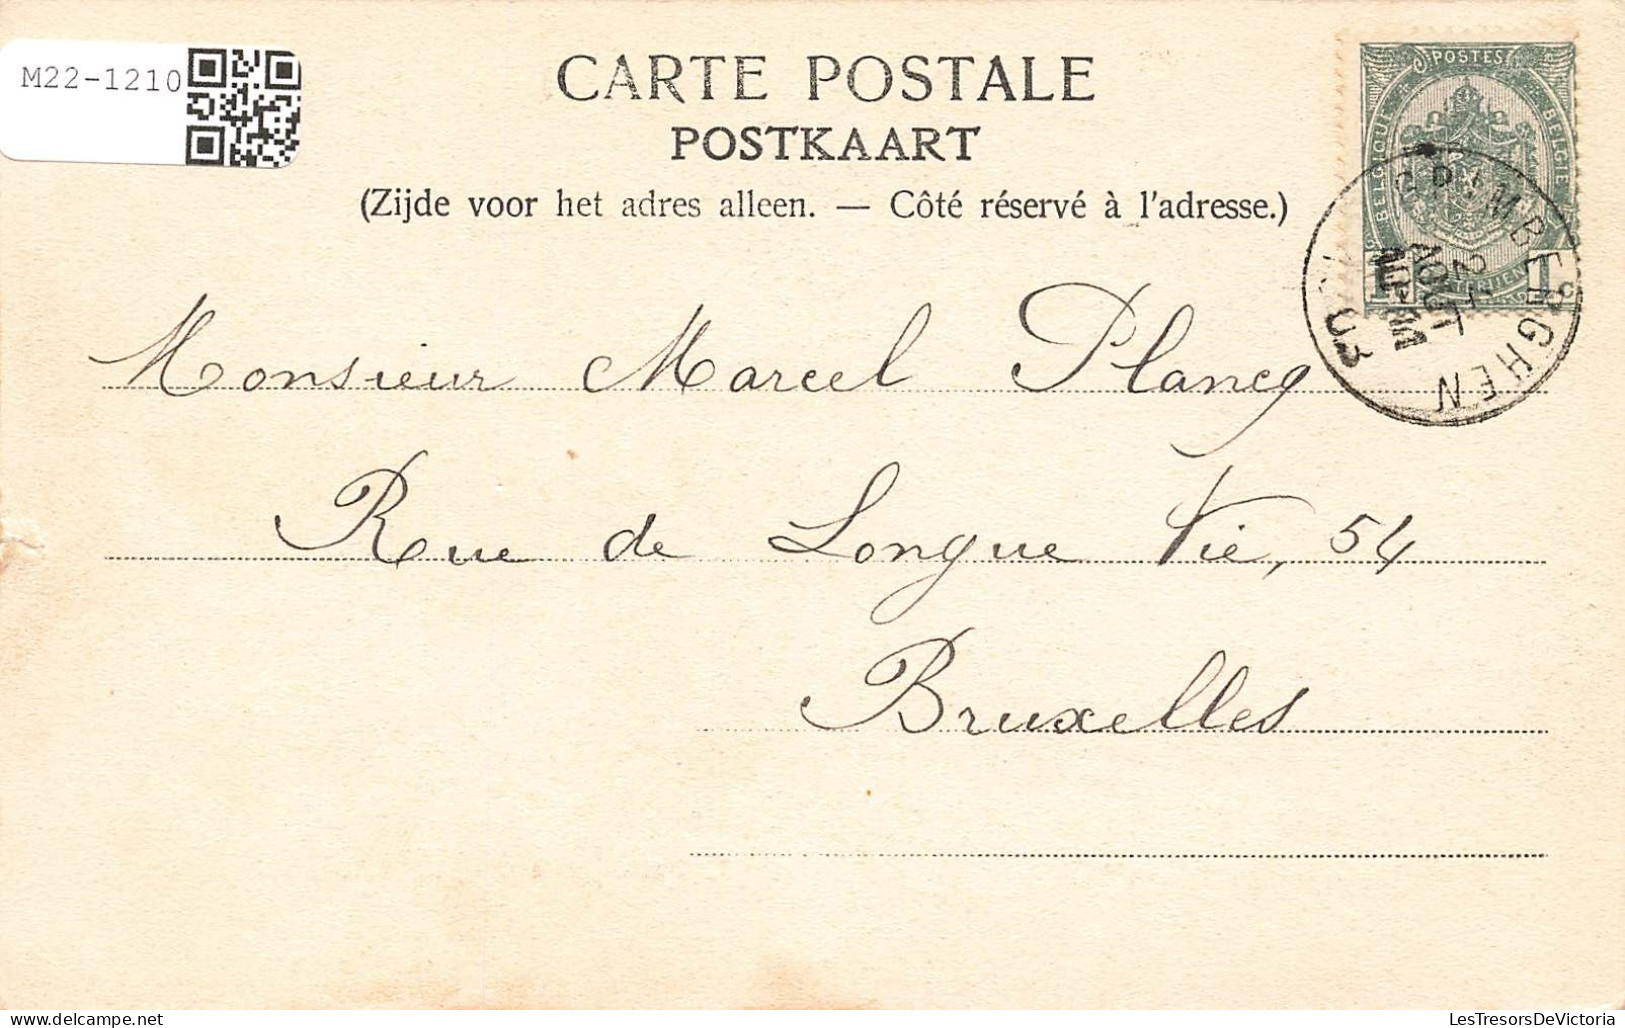 M22-1210
CARTE POSTALE
POSTKAART
(Zijde voor het adres alleen. — Côté réservé à l'adresse.)
POSTES
BELGIQUE
BELGIE
1c
GRIMBERGHEN
AOUT
03
Monsieur Marcel Plancq
Rue de Longue Vie, 54
Bruxelles
LesTresorsDeVictoria